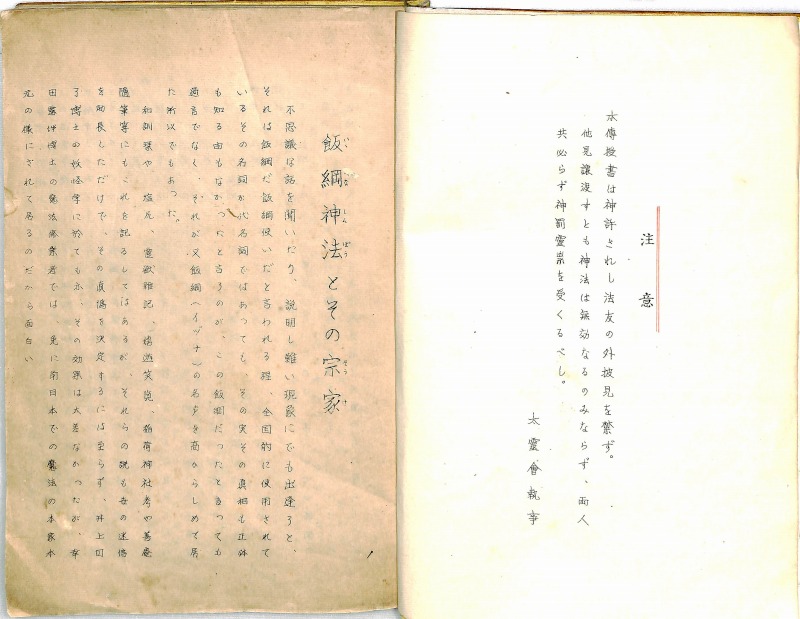 注意
本傳授書は神許されし法友の外披見を禁ず。
他見讓渡すとも神法は無効なるのみならず、両人
共必らず神罰靈祟を受くるべし。
太靈會執事
飯綱神法とその宗家
不思議な話を聞いたり、説明し難い現象にでも出逢うと、
それは飯綱だ飯綱使いだと言われる程、全国的に使用されて
いるその名詞が代名詞ではあっても、その実その真相も正体
も知る由もなかったと言うのが、この飯綱だったと言っても
過言でなく、それが又飯綱(イヅナ)の名を高からしめて居
た所以でもあった。
和訓栞や塩尻、霊獣雑記、嬉遊笑覧、稲荷神社考や善庵
随筆等にもこれを記るしてはあるが、それらの説も世の迷信
を助長しただけで、その真偽を決定するには至らず、井上円
了博士の妖怪学に於ても亦、その効果は大差なかったが、幸
田露伴博士の魔法修業者では、兎に角日本での魔法の本家本
元の様にされて居るのだから面白い